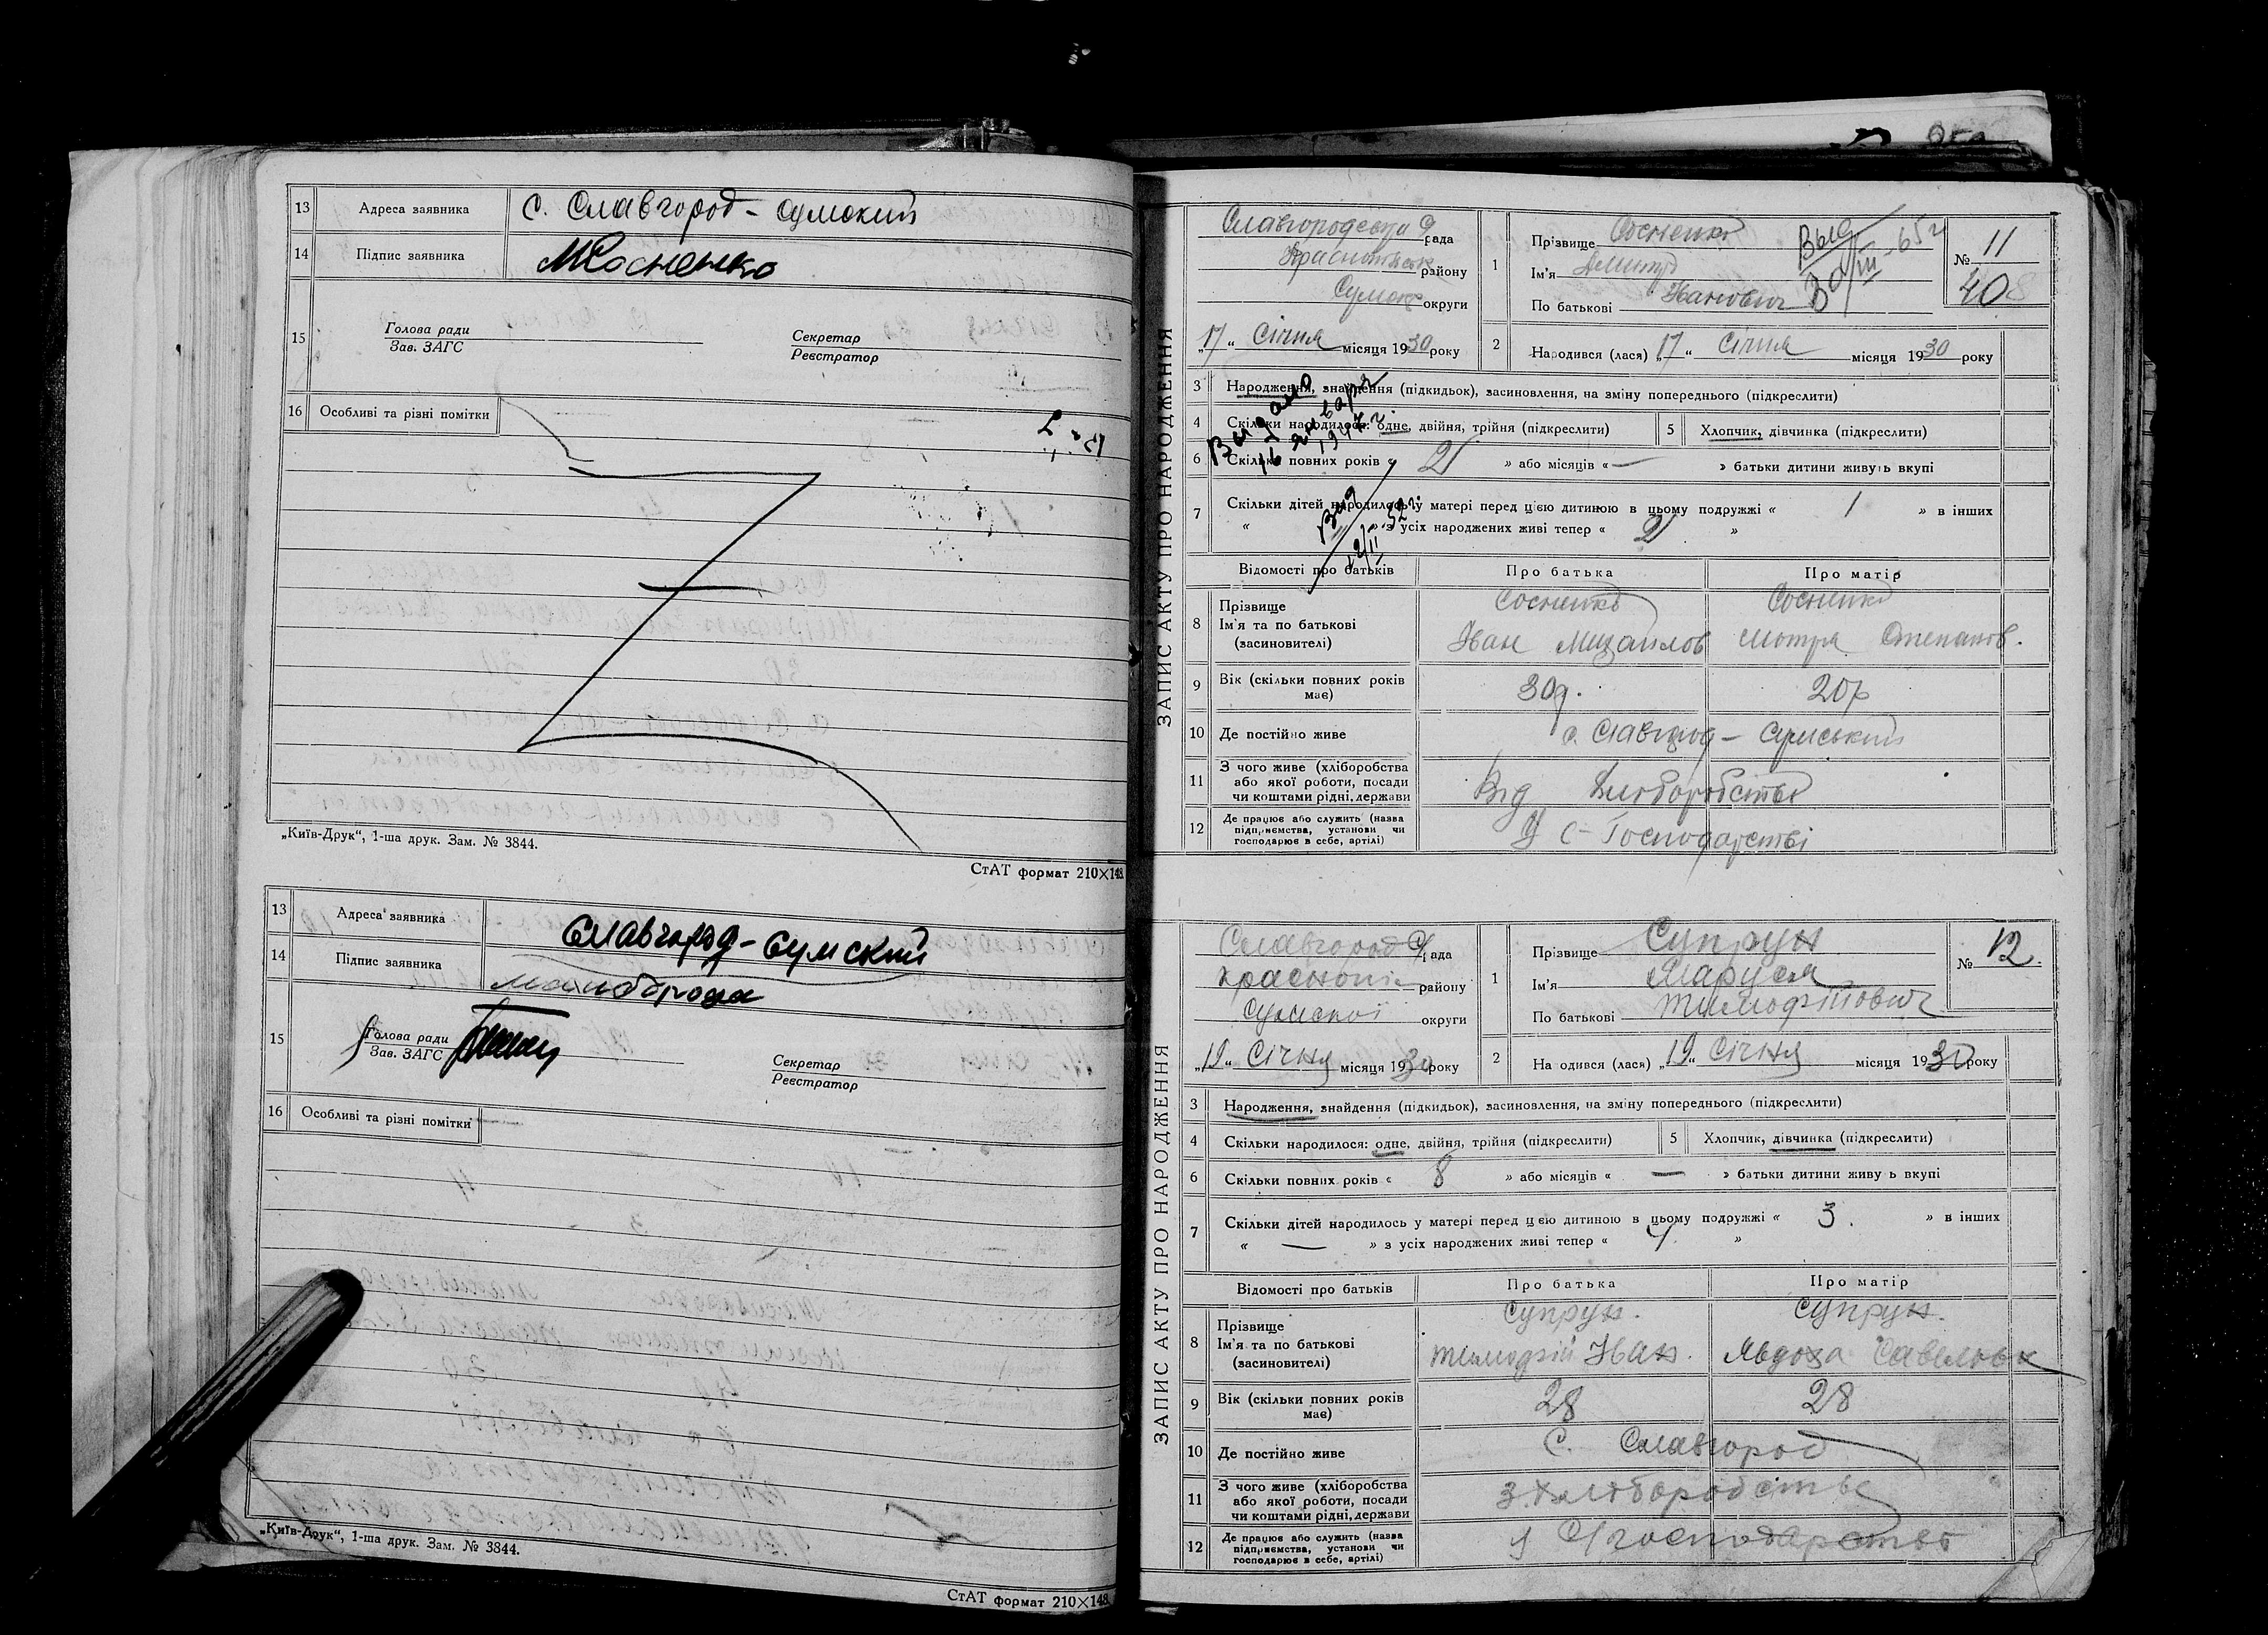 13 Адреса заявника с. Славгород-Сумский
14 Підпис заявника МСосненко
15 Голова ради
Зав. ЗАГС
Секретар
Реєстратор
16 Особливі та різні помітки
„Київ-Друк“, 1-ша друк. Зам. № 3844.
СтАТ формат 210×148.
13 Адреса заявника Славгород-Сумский
14 Підпис заявника
15 Голова ради
Зав. ЗАГС
Секретар
Реєстратор
16 Особливі та різні помітки
„Київ-Друк“, 1-ша друк. Зам. № 3844.
СтАТ формат 210×148.
ЗАПИС АКТУ ПРО НАРОДЖЕННЯ
рада
району
округи
„17“ Січня місяця 1930 року
1 Прізвище Сосненко
Ім'я Дмитро
По батькові Іванович
Выд 30/III-65 г
№ 11
408
2 Народився (лася) „17“ Січня місяця 1930 року
3 Народження, знайдення (підкидьок), засиновлення, на зміну попереднього (підкреслити)
4 Скільки народилося: одне, двійня, трійня (підкреслити)
5 Хлопчик, дівчинка (підкреслити)
6 Скільки повних років « 2 » або місяців « — » батьки дитини живуть вкупі
7 Скільки дітей народилось у матері перед цією дитиною в цьому подружжі « 1 » в інших
« » з усіх народжених живі тепер « 2 »
Выдано
16 января
1947 г.
Выд
Відомості про батьків
Про батька
Про матір
8 Прізвище
Ім'я та по батькові
(засиновителі)
Сосненко
Іван Михайлов
Сосненко
Мотря Степанов.
9 Вік (скільки повних років має)
30р.
20р
10 Де постійно живе с. Славгород - Сумський
11 З чого живе (хліборобства
або якої роботи, посади
чи коштами рідні, держави
Від Хліборобства
12 Де працює або служить (назва
підприємства, установи чи
господарює в себе, артілі)
У С-Господарстві
ЗАПИС АКТУ ПРО НАРОДЖЕННЯ
Славгород С/рада
Краснопіл району
Сумської округи
„19“ Січня місяця 1930 року
1 Прізвище Супрун
Ім'я Маруся
По батькові Тимофійович
№ 12.
2 Народився (лася) „19“ Січня місяця 1930 року
3 Народження, знайдення (підкидьок), засиновлення, на зміну попереднього (підкреслити)
4 Скільки народилося: одне, двійня, трійня (підкреслити)
5 Хлопчик, дівчинка (підкреслити)
6 Скільки повних років « 8 » або місяців « — » батьки дитини живуть вкупі
7 Скільки дітей народилось у матері перед цією дитиною в цьому подружжі « 3. » в інших
« — » з усіх народжених живі тепер « 4. »
Відомості про батьків
Про батька
Про матір
8 Прізвище
Ім'я та по батькові
(засиновителі)
Супрун.
Тимофій Іван.
Супрун.
Явдоха Савельовн
9 Вік (скільки повних років має)
28
28
10 Де постійно живе С. Славгород
11 З чого живе (хліборобства
або якої роботи, посади
чи коштами рідні, держави
З Хліборобства
12 Де працює або служить (назва
підприємства, установи чи
господарює в себе, артілі)
у С/господарстві